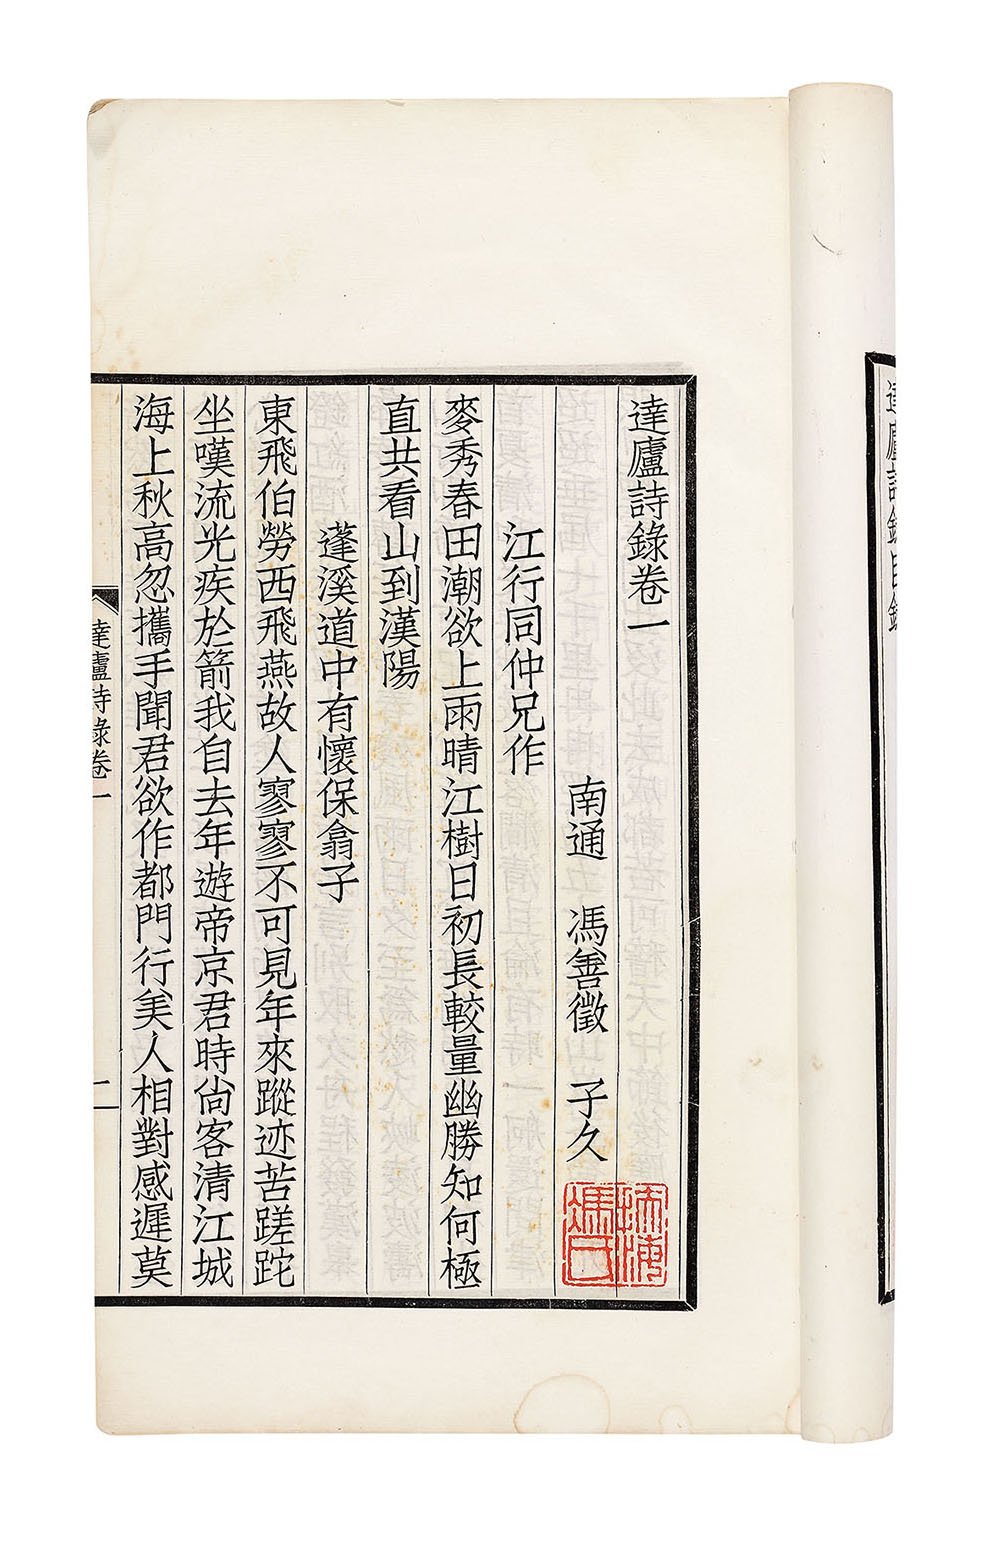 達廬詩錄目錄
達廬詩錄卷一
南通 馮善徵 子久
江行同仲兄作
麥秀春田潮欲上雨晴江樹日初長較量幽勝知何極
直共看山到漢陽
蓬溪道中有懷保翕子
東飛伯勞西飛燕故人寥寥不可見年來蹤迹苦蹉跎
坐嘆流光疾於箭我自去年遊帝京君時尙客清江城
海上秋高忽攜手聞君欲作都門行美人相對感遲莫
達廬詩錄卷一
二